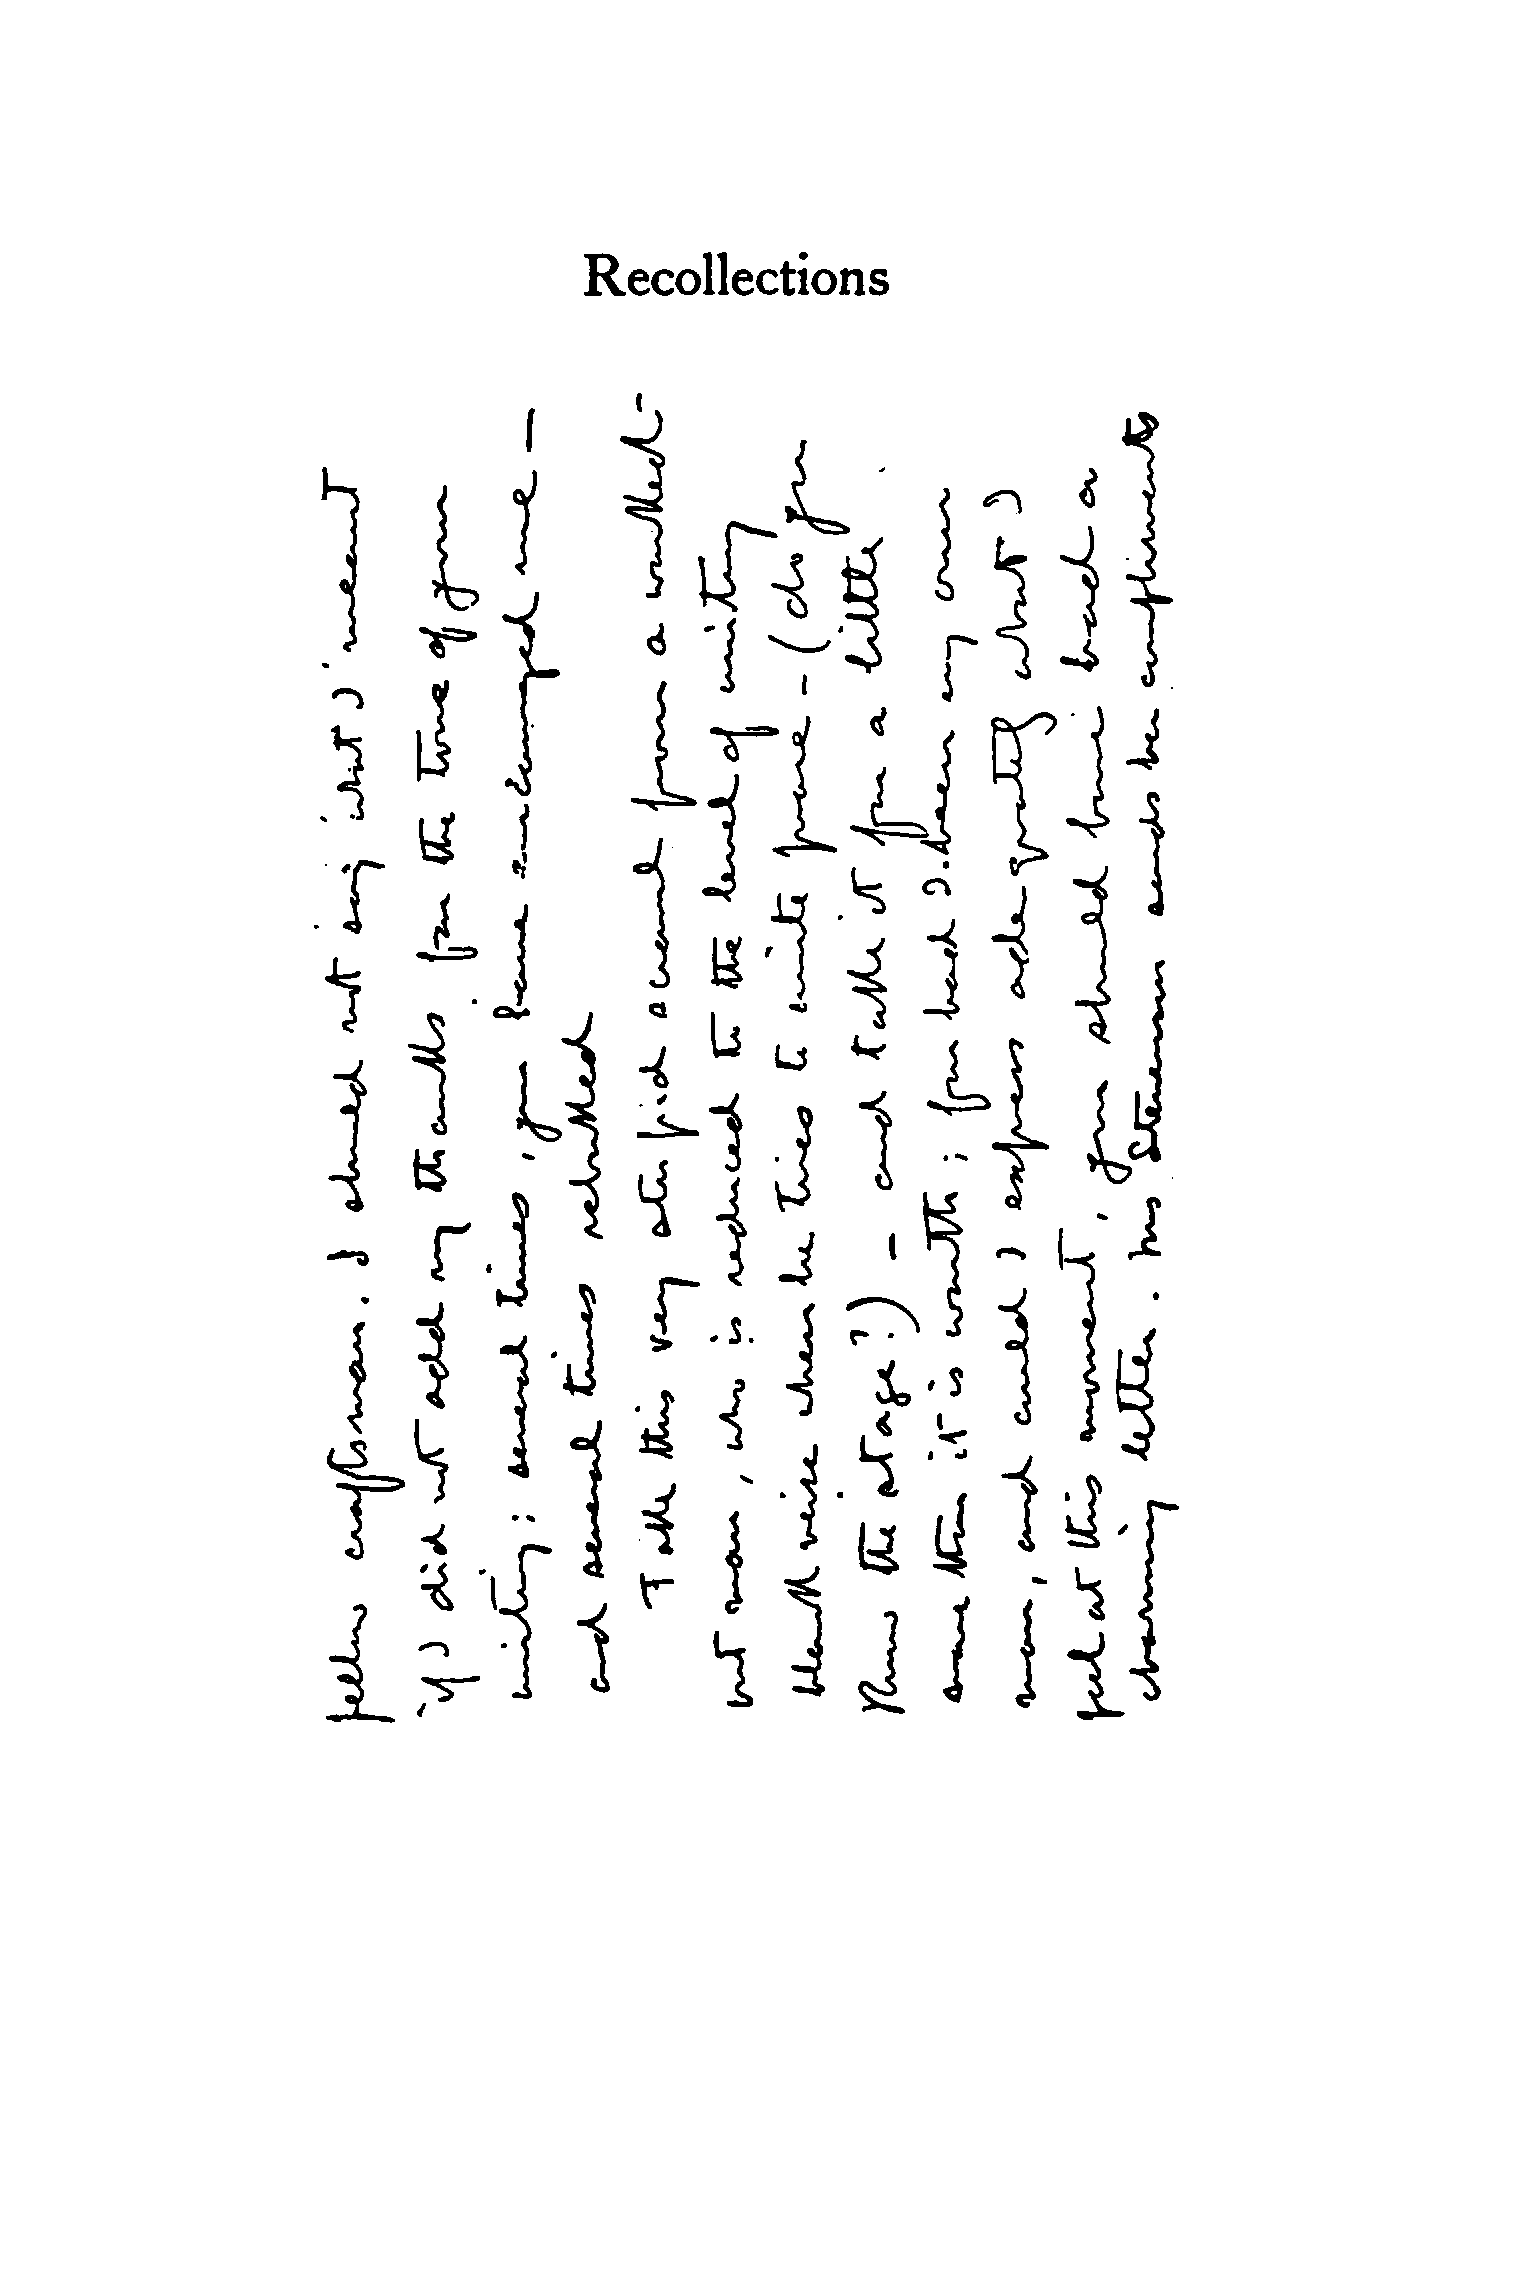 Recollections
fellow craftsman. I should not say 'what I' meant
if I did not add my thanks for the tone of your
writing; several times, you have encouraged me —
and several times rebuked
Take this very stupid scrawl from a worked-
out man, who is reduced to the level of writing
blank verse when he tries to write prose — (do you
know the stage?) — and take it for a little
more than it is worth; for had I been my own
man, and could I express adequately what I
feel at this moment, you should have had a
charming letter. Mrs Stevenson sends her compliments